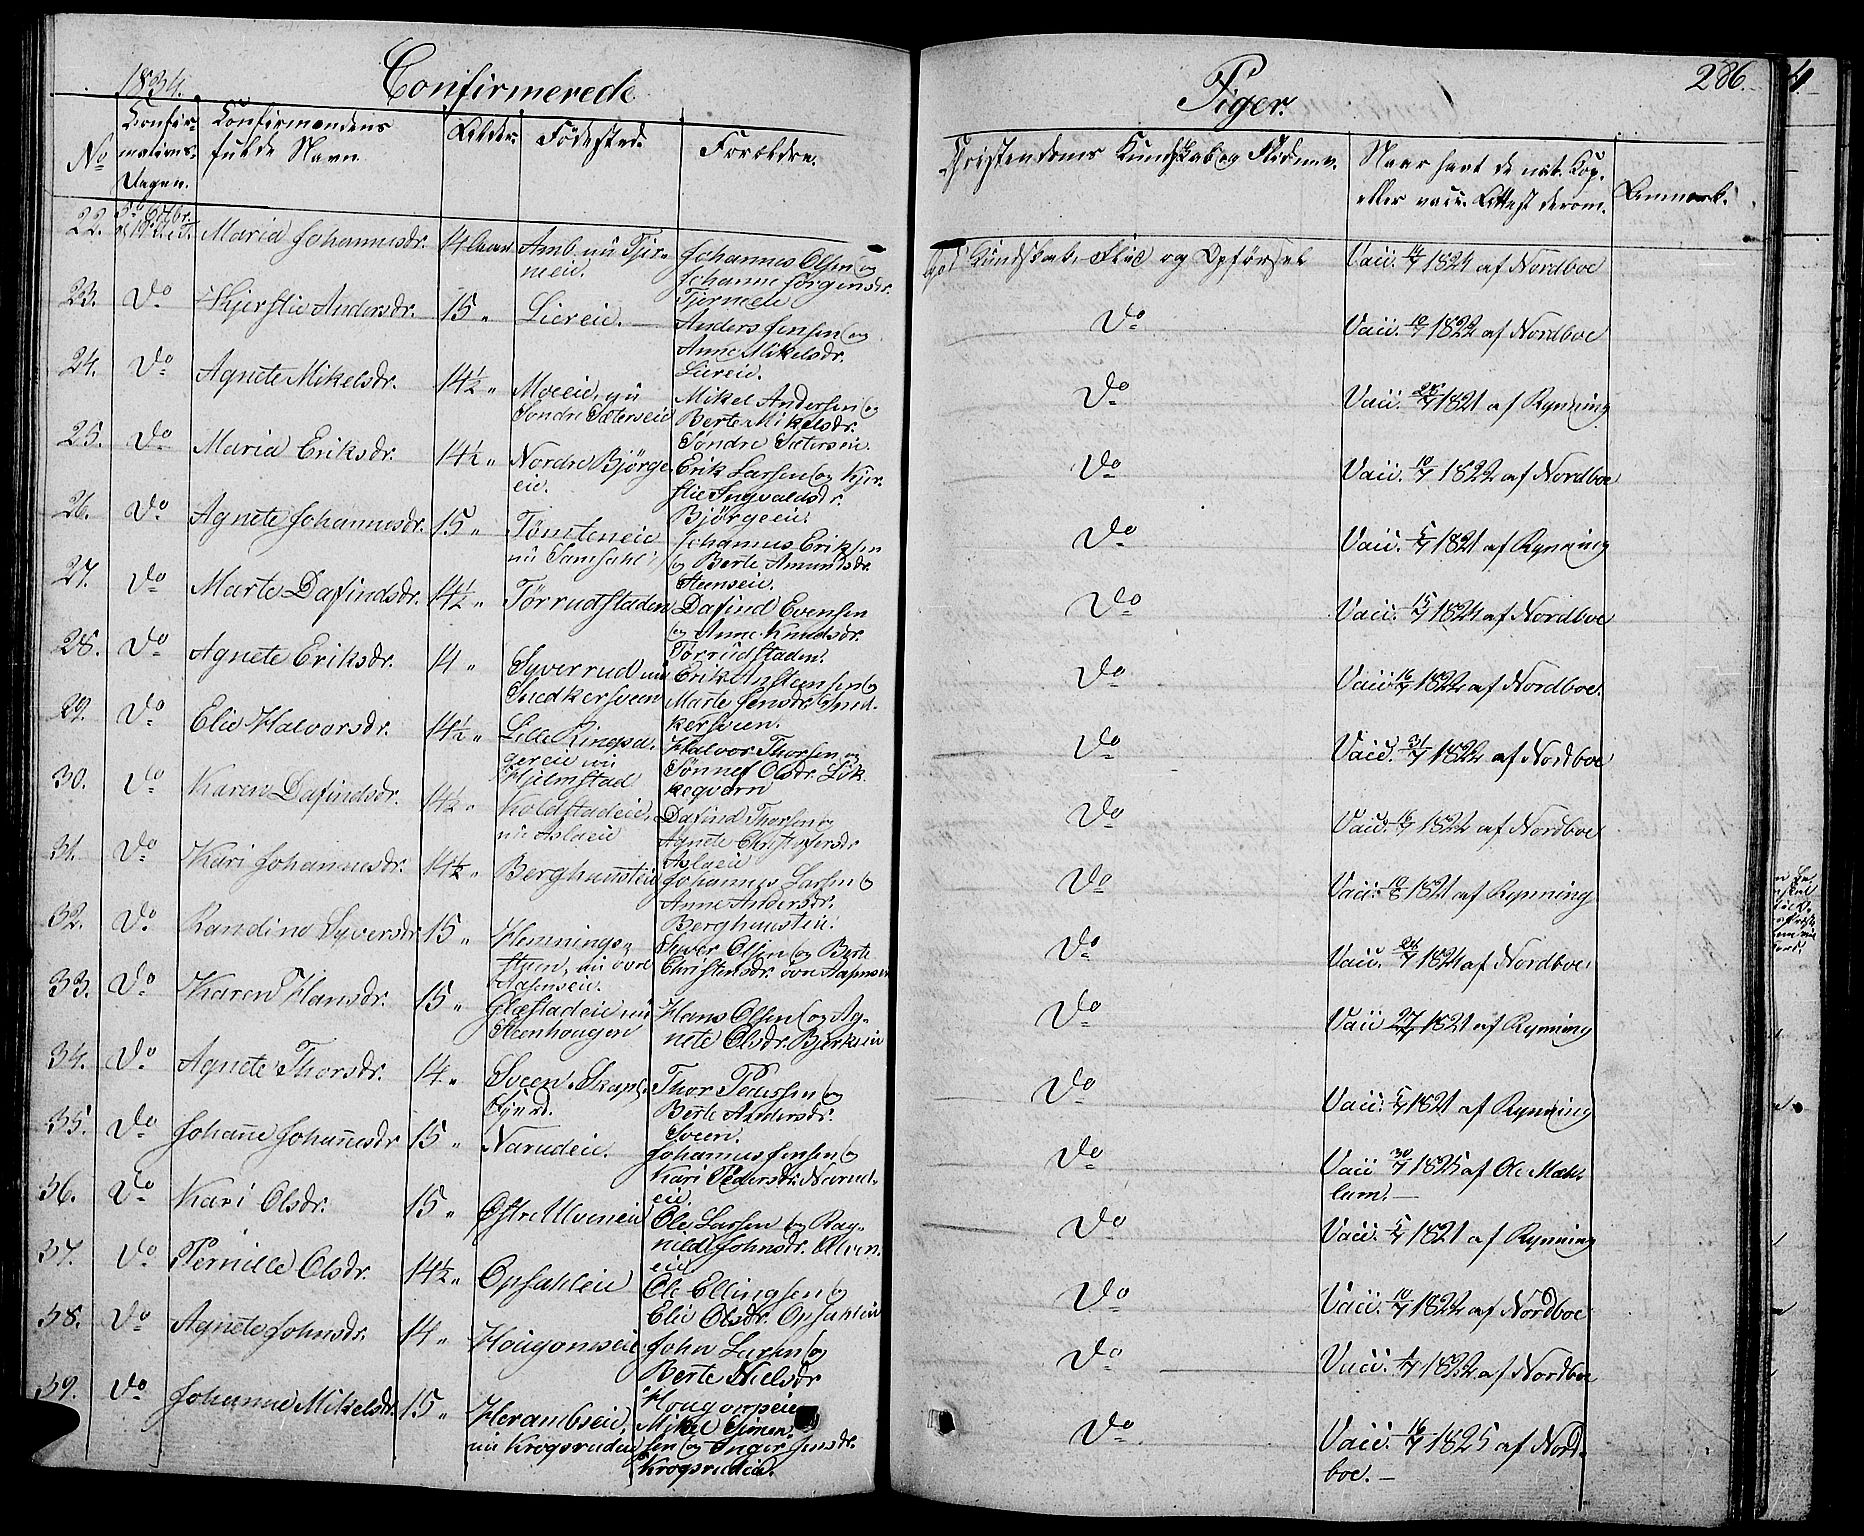 1834.
Confirmerede
Piger.
286.
No
Confir-
mations-
Dagen.
Confirmandens
fulde Navn
Alder.
Födested.
Forældre.
Christendoms Kundskab og Fl
Naar havt de nat. Kop.
eller vacc. Attest derom.
Anmærk.
22. Maria Johannesdr. 14 Amb nu Tjer-
neie. Johannes Olsen og
Johanne Jörgensdr.
Tjerneeie
god Kundskab, Flid og Opförsel Vacc. 1824 af Nordboe
23. Do Kjerstie Andersdr. 15 " Liereie. Anders Jensen og
Anne Mikelsdr.
Liereie.
Do Vacc. 10/7 1822 af Nordboe
24. Do Agnete Mikelsdr. 14½ " Moeeie, nu
Söndre Sæterseie Mikel Andersen og
Berte Mikelsdr.
Söndre Sæterseie.
Do Vacc. 1821 af Rynning
25. Do Maria Eriksdr. 14½ " Nordre Björge
eie. Erik Larsen og Kjer-
stie Ingvaldsdr.
Björgeeie.
Do Vacc. 10/7 1822 af Nordboe
26. Do Agnete Johannesdr. 15 " Tömteneie
nu Johannes Eriksen
og Berte Amundsdr.
Steenseie.
Do Vacc. 5/7 1821 af Rynning
27. Do Marte Dafindsdr. 14½ " Törrudstaden Dafind Evensen
og Anne Knudsdr.
Törrudstaden.
Do Vacc. 15/7 1824 af Nordboe
28. Do Agnete Eriksdr. 14 " Syverrud nu
Snedkersveen Erik Ansteensen og
Marte Jensdr. Sned-
kersveen.
Do Vacc. 16/7 1822 af Nordboe.
29. Do Elie Halvorsdr. 14½ " Lille Ringsa-
gereie nu
Hjelmstad Halvor Thorsen og
Sönnef Olsdr. Lik-
keqværn
Do Vacc. 31/7 1822 af Nordboe
30. Do Karen Dafindsdr. 14½ " Koldstadeie,
nu Aslaeie Dafind Thorsen og
Agnete Christophersdr
Aslaeie
Do Vacc. 16/7 1822 af Nordboe
31. Do Kari Johannesdr. 14½ " Berghumsteie Johannes Larsen og
Anne Andersdr.
Berghumsteie.
Do Vacc. 10/8 1821 af Rynning
32. Do Randine Syversdr 15 " Hemmings-
steen, nu övre
Aasenseie. Syver Olsen og Berte
Christensdr. övre Aasenseie
Do Vacc. 24/7 1821 af Nordboe.
33. Do Karen Hansdr. 15 " Glæstadeie nu
Steenhougen Hans Olsen og Ag-
nete Olsdr. Bjerkeeie
Do Vacc 27/7 1821 af Rynning
34. Do Agnete Thorsdr. 14 " Sveen Skapt-
Fjerd. Thor Pedersen og
Berte Andersdr.
Sveen.
Do Vacc. 5/7 1821 af Rynning
35. Do Johan̄e Johan̄esdr 15 " Narudeie. Johannes Jensen og
Kari Pedersdr. Narud-
eie.
Do Vacc 30/7 1825 af Ole Mæh-
lum. —
36. Do Kari Olsdr. 15 " Östre Ulveneie Ole Larsen og Rag-
nild Johnsdr. Ulven-
eie
Do Vacc. 5/7 1821 af Rynning
37. Do Pernille Olsdr. 14½ " Opsahleie Ole Ellingsen og
Elie Olsdr. Opsahleie
Do Vacc. 10/7 1822 af Nordboe
38. Do Agnete Johnsdr. 14 " Hougomseie John Larsen og
Berte Nielsdr
Hougomseie
Do Vacc. 1822 af Nordboe
39. Do Johanne Mikelsdr. 15 " Herambseie,
nu Krogsrudeie Mikel Simen-
sen og Inger Jensdr.
Krogsrudeie.
Do Vacc. 16/7 1825 af Nord-
boe. —